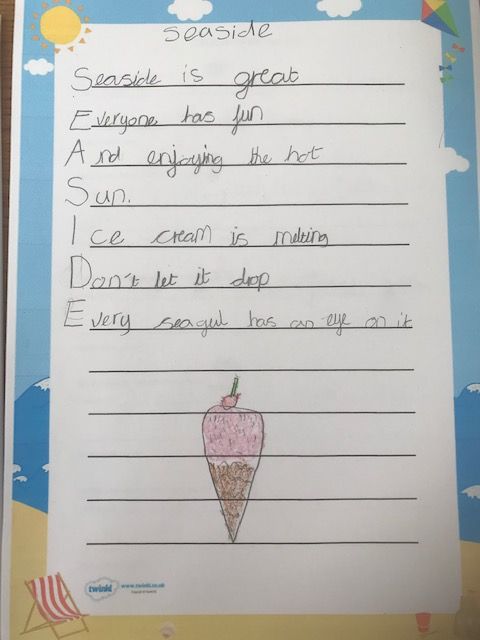 seaside
Seaside is great
Everyone has fun
And enjoying the hot
Sun.
Ice cream is melting
Don't let it drop
Every seagul has an eye on it
twinkl www.twinkl.co.uk